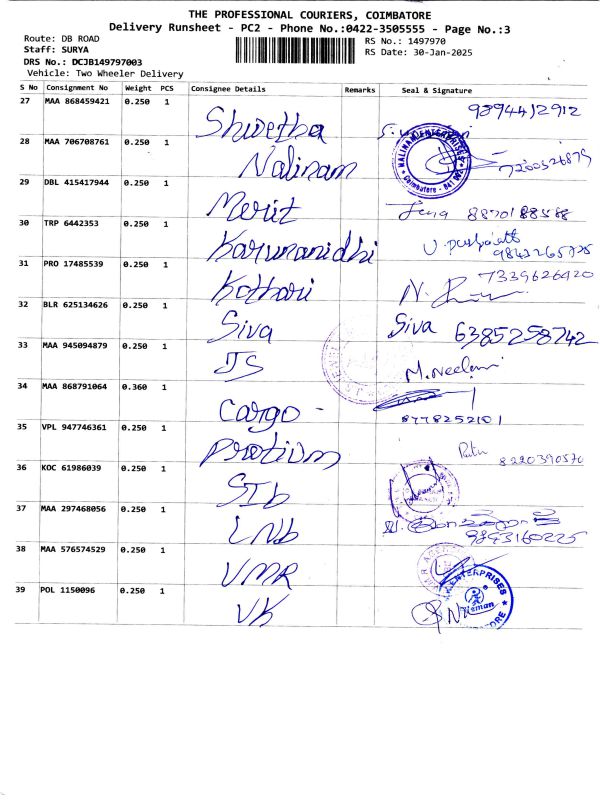 THE PROFESSIONAL COURIERS, COIMBATORE
Delivery Runsheet - PC2 - Phone No.:0422-3505555 - Page No.:3
Route: DB ROAD
RS No.: 1497970
Staff: SURYA
RS Date: 30-Jan-2025
DRS No.: DCJB149797003
Vehicle: Two Wheeler Delivery
S No Consignment No Weight PCS Consignee Details Remarks Seal & Signature
27 MAA 868459421 0.250 1 Shwetha 9894412912
28 MAA 706708761 0.250 1 Nalinam NALINAM ENTERPRISES Coimbatore
29 DBL 415417944 0.250 1 Merit
30 TRP 6442353 0.250 1 Karunanidhi
31 PRO 17485539 0.250 1 Kothari 7339626920
32 BLR 625134626 0.250 1 Siva Siva 6385258742
33 MAA 945094879 0.250 1 JS
34 MAA 868791064 0.360 1 Cargo - 8778252101
35 VPL 947746361 0.250 1 Protium
36 KOC 61986039 0.250 1 STb
37 MAA 297468056 0.250 1 LNb 9893160225
38 MAA 576574529 0.250 1 VMR
39 POL 1150096 0.250 1 VK ENTERPRISES